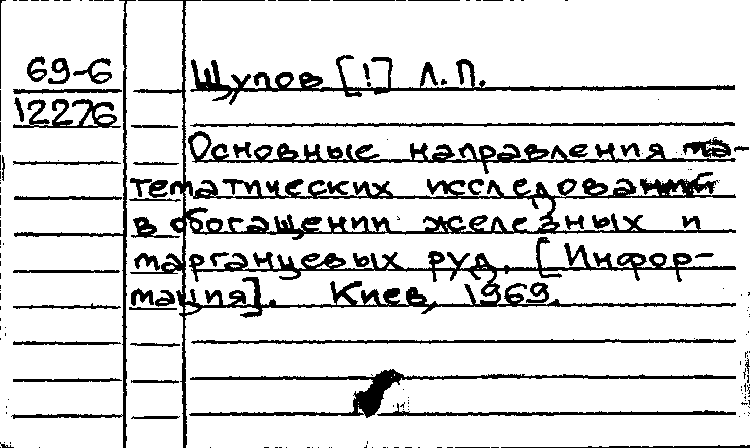 69-6
12276
Щупов [!] Л.П.
Основные направления ма-
тематических исследований
в обогащении железных и
марганцевых руд. [Инфор-
мация]. Киев, 1969.